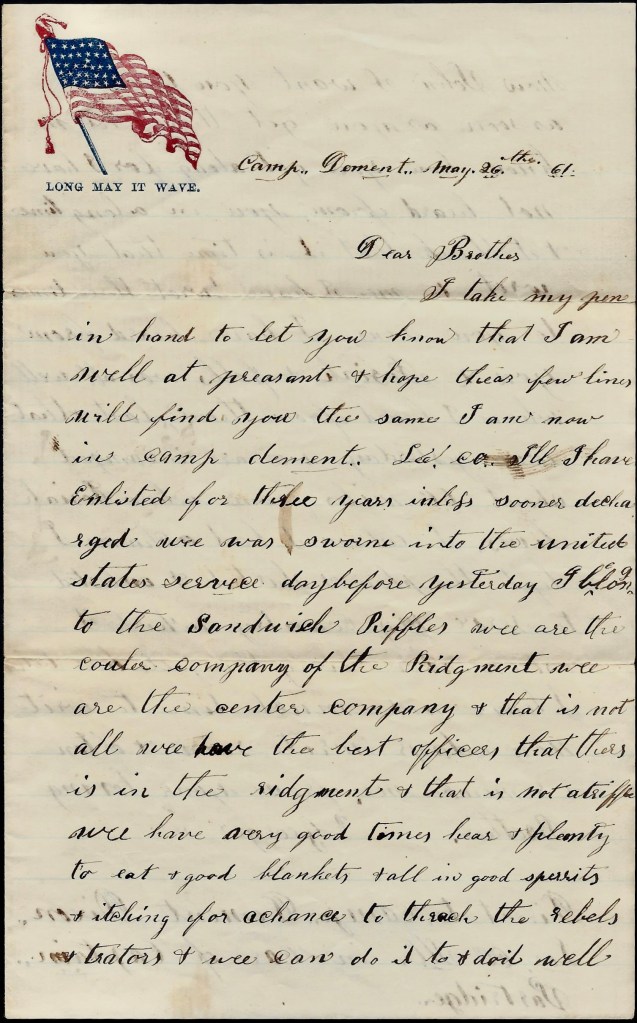 LONG MAY IT WAVE.
Camp.. Dement.. May. 26.the. 61.
Dear Brother
I take my pen
in hand to let you know that I am
well at preasant & hope theas few lines
will find you the same I am now
in camp dement.. Le. co.. Ill I have
Enlisted for three years inless sooner decha
rged wee was sworne into the united
states servece daybefore yesterday I belong
to the Sandwich Riffles wee are the
couler company of the Ridgment wee
are the center company & that is not
all wee have the best officers that thers
is in the ridgment & that is not a triffle
wee have very good times hear & plenty
to eat & good blankets & all in good sperrits
& itching for a chance to the rebels
& trators & wee can do it to & doit well